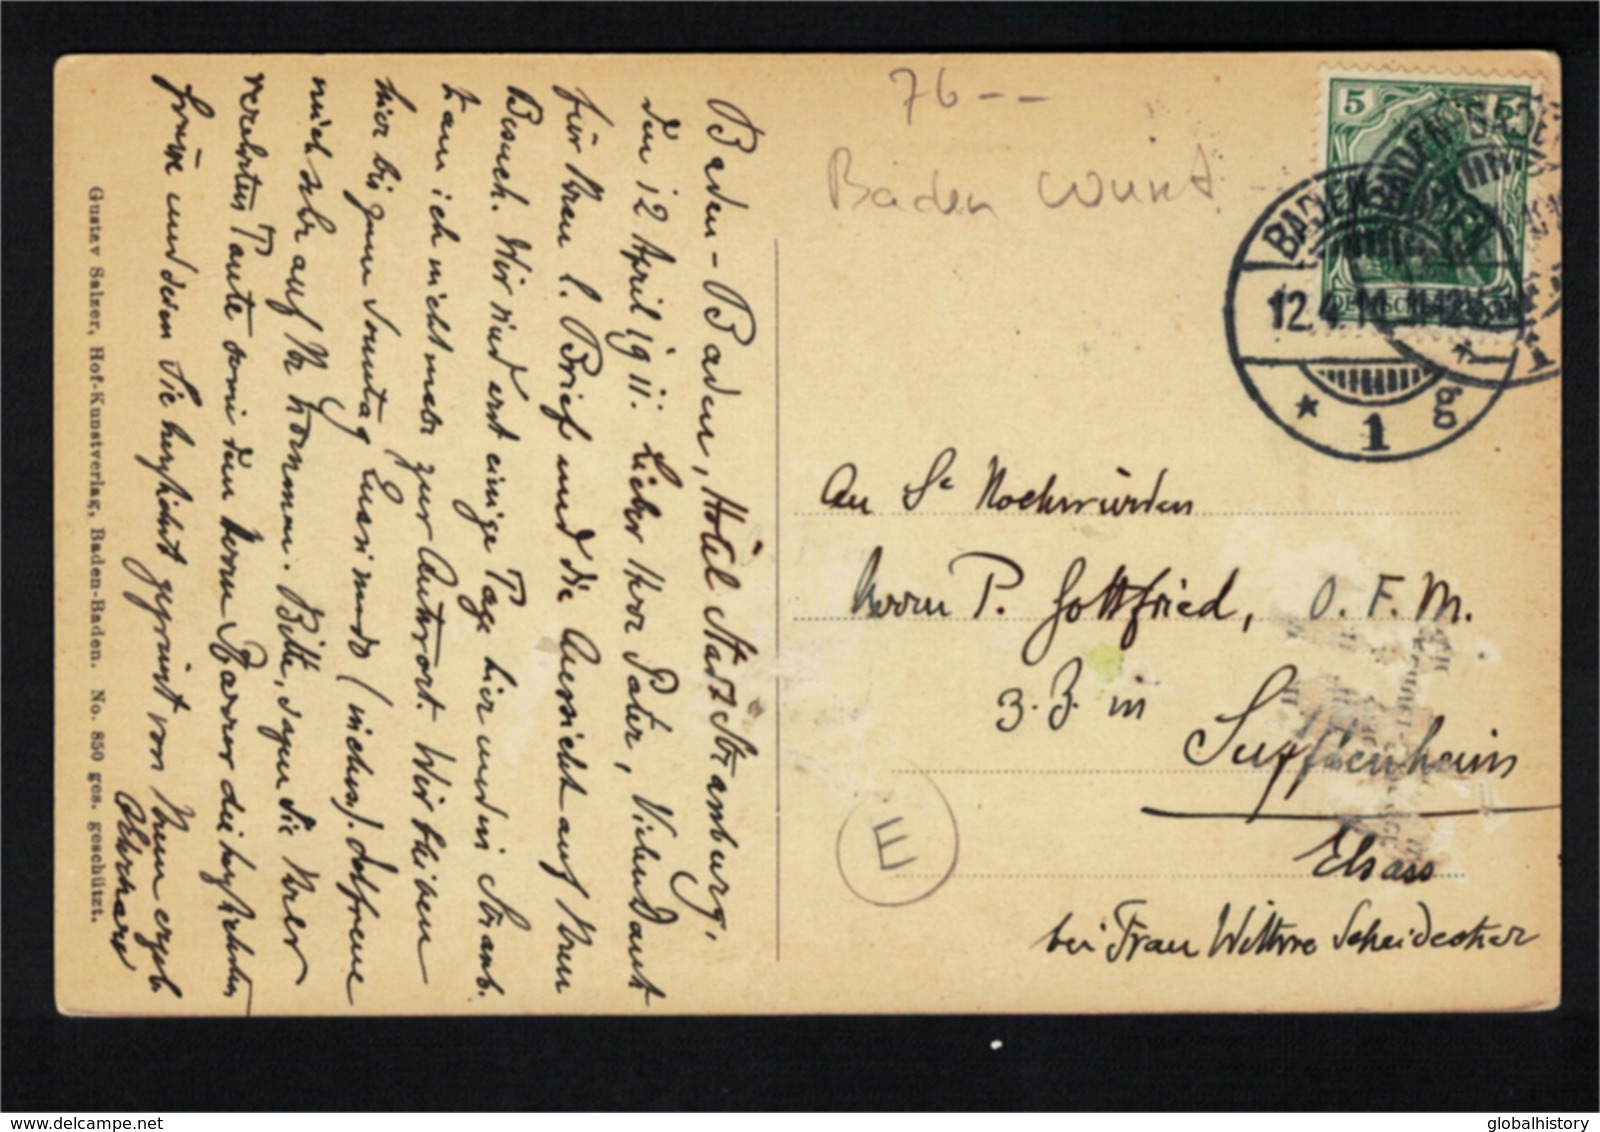 76 --
Baden Würt
5
BADEN-BADEN
12.4.11. 11-12
DEUTSCHES REICH
* 1 *
Baden-Baden, Hotel Stadt Strassburg,
den 12 April 1911. Lieber Herr Pater, Vielen Dank
für Ihren l. Brief und die Aussicht auf Ihren
Besuch. Wir sind erst einige Tage hier und in Strassb.
kann ich nicht mehr zur Antwort. Wir bleiben
hier bis zum Sonntag Quasimodo (inclus.). Ich freue
mich sehr auf Ihr Kommen. Bitte, sagen Sie Ihrer
verehrten Tante sowie dem Herrn Pfarrer die herzlichsten
Grüsse und seien Sie herzlichst gegrüsst von Ihrem ergeb.
Gustav Salzer, Hof-Kunstverlag, Baden-Baden. No. 850 ges. geschützt.
An Se Hochwürden
Herrn P. Gottfried, O. F. M.
z. Z. in
Sufflenheim
Elsass
bei Frau Wittwe Scheidecker
E
globalhistory